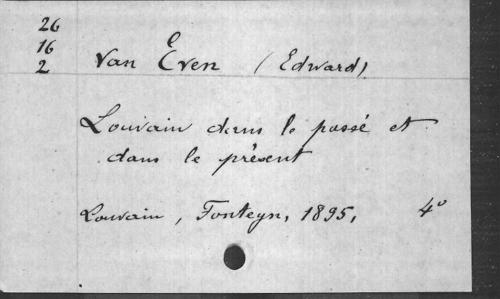 26
16
2
Van Even (Edward)
Louvain dans le passé et
dans le présent
Louvain, Fonteyn, 1895, 4°